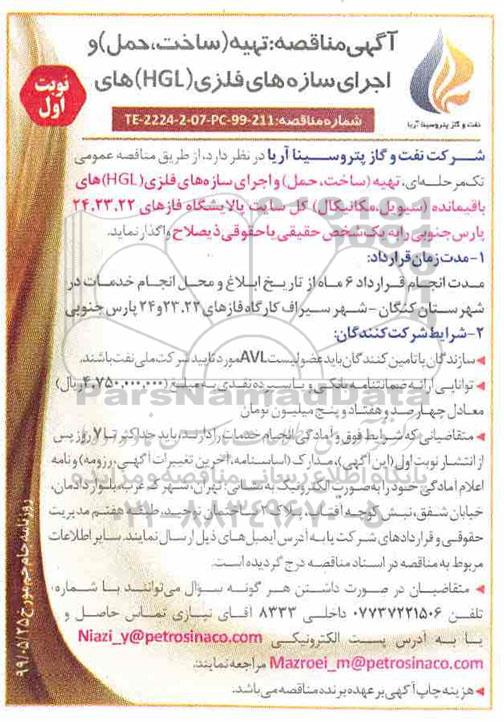 آگهی مناقصه: تهیه (ساخت، حمل) و
اجرای سازه های فلزی (HGL) های
نوبت
اول
نفت و گاز پتروسینا آریا
شماره مناقصه: TE-2224-2-07-PC-99-211
شرکت نفت و گاز پتروسینا آریا در نظر دارد، از طریق مناقصه عمومی
تک مرحله‌ای، تهیه (ساخت، حمل) و اجرای سازه‌های فلزی (HGL) های
باقیمانده (سیویل، مکانیکال) کل سایت پالایشگاه فازهای ۲۴،۲۳،۲۲
پارس جنوبی را به یک شخص حقیقی یا حقوقی ذیصلاح واگذار نماید.
۱- مدت زمان قرارداد:
مدت انجام قرارداد ۶ ماه از تاریخ ابلاغ و محل انجام خدمات در
شهرستان کنگان - شهر سیراف کارگاه فازهای ۲۳،۲۲ و ۲۴ پارس جنوبی
۲- شرایط شرکت کنندگان:
سازندگان یا تامین کنندگان باید عضو لیست AVL مورد تایید شرکت ملی نفت باشند.
توانایی ارائه ضمانتنامه بانکی و یا سپرده نقدی به مبلغ (۴,۷۵۰,۰۰۰,۰۰۰ ریال)
معادل چهارصد و هفتاد و پنج میلیون تومان
متقاضیانی که شرایط فوق و آمادگی انجام خدمات را دارند، باید حداکثر تا ۷ روز پس
از انتشار نوبت اول (این آگهی)، مدارک (اساسنامه، آخرین تغییرات آگهی، رزومه) و نامه
اعلام آمادگی خود را به صورت الکترونیک به نشانی تهران، شهرک غرب، بلوار دادمان،
خیابان شفق، نبش کوچه افتاب، پلاک ۲، ساختمان توحید، طبقه هفتم مدیریت
حقوقی و قراردادهای شرکت یا به آدرس ایمیل های ذیل ارسال نمایند. سایر اطلاعات
مربوط به مناقصه در اسناد مناقصه درج گردیده است.
متقاضیان در صورت داشتن هر گونه سؤال می‌توانند با شماره
تلفن ۰۷۷۳۷۲۲۱۵۰۶ داخلی ۸۳۳۳ آقای نیازی تماس حاصل و
یا به آدرس پست الکترونیکی Niazi_y@petrosinaco.com
Mazroei_m@petrosinaco.com مراجعه نمایند.
هزینه چاپ آگهی بر عهده برنده مناقصه می‌باشد.
روزنامه جام جم مورخ ۹۹/۰۵/۲۵
ParsNamadData
پایگاه اطلاع رسانی مناقصه و مزایده
۰۲۱-۸۸۳۴۹۶۷۰-۵